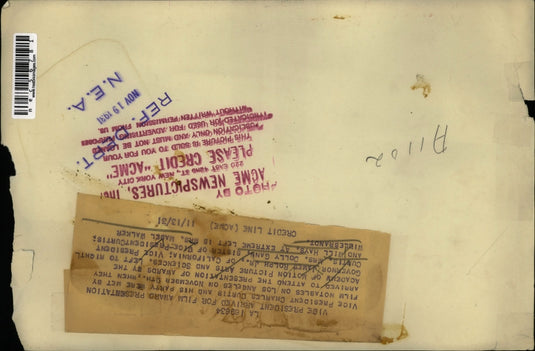 REF. DEPT.
NOV 19 1931
N. E. A.
PHOTO BY
ACME NEWSPICTURES, INC.
220 EAST 42nd ST., NEW YORK CITY
PLEASE CREDIT "ACME"
THIS PICTURE IS SOLD TO YOU FOR YOUR
PUBLICATION ONLY AND MUST NOT BE LOANED
OR USED FOR ADVERTISING PURPOSES
WITHOUT WRITTEN PERMISSION FROM US
A1102
LA
VICE PRESIDENT ARRIVED FOR FILM AWARD PRESENTATION
VICE PRESIDENT CHARLES CURTIS AND HIS PARTY WERE MET BY
FILM NOTABLES IN LOS ANGELES ON NOVEMBER WHEN THEY
ARRIVED TO ATTEND THE PRESENTATION OF AWARDS BY THE
ACADEMY OF MOTION PICTURE ARTS AND SCIENCES. LEFT TO RIGHT,
GOVERNOR JAMES ROLPH JR., OF CALIFORNIA; VICE PRESIDENT
CURTIS; MRS. DOLLY GANN, SISTER OF VICE-PRESIDENT CURTIS;
AND WILL HAYS. AT EXTREME LEFT IS MRS. MABEL WALKER
WILLEBRANDT.
CREDIT LINE (ACME) 11/13/31